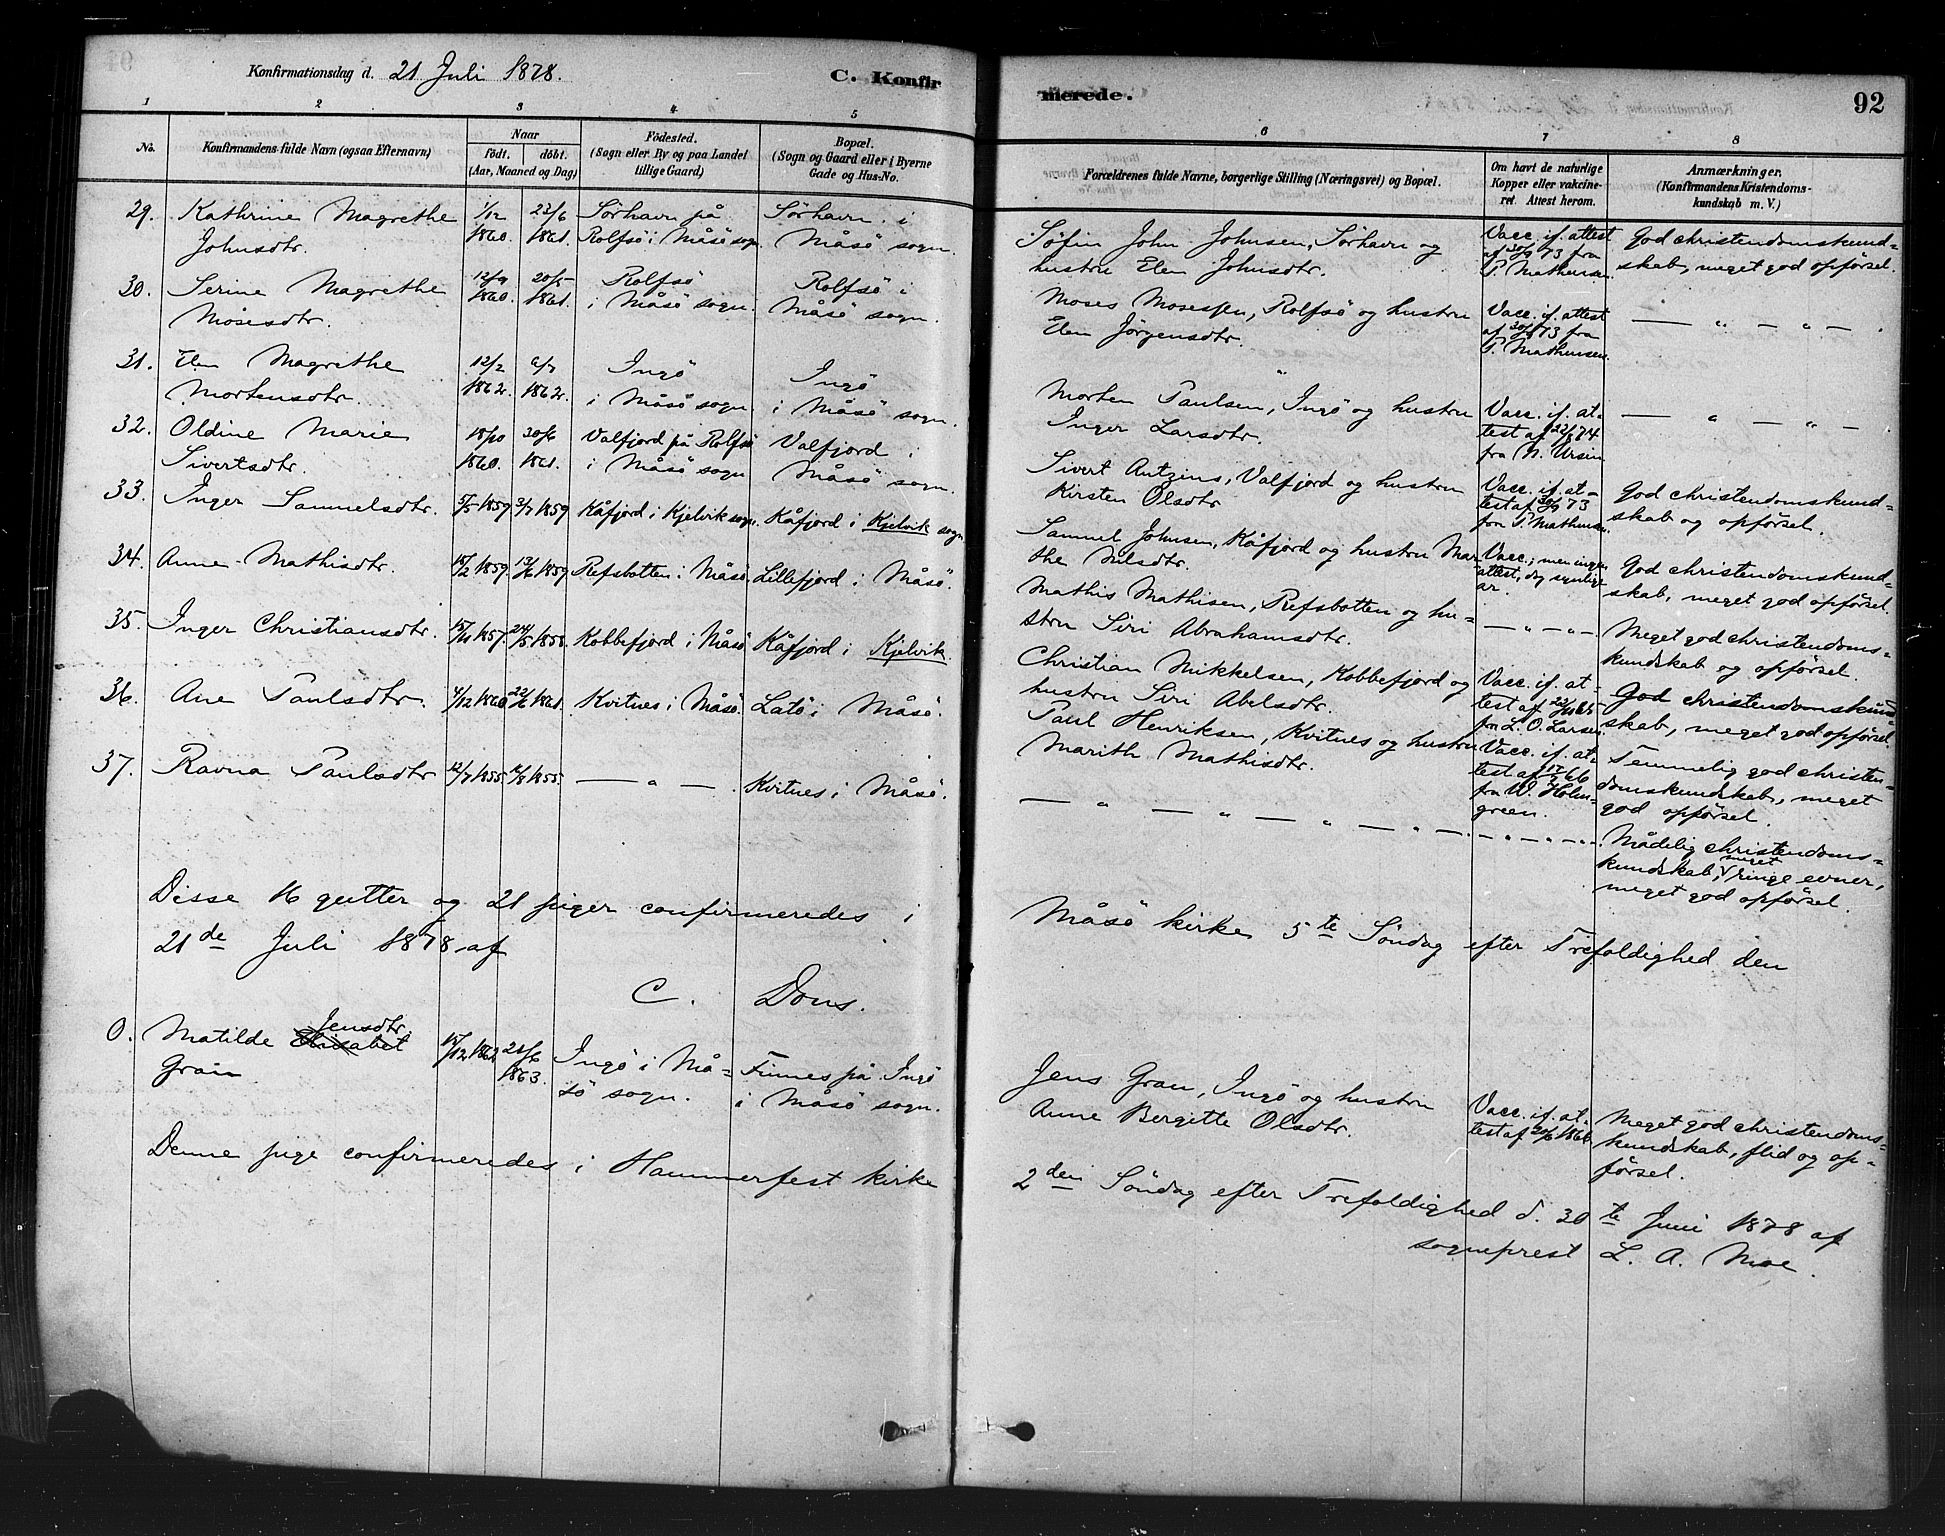 Konfirmationsdag d. 21 Juli 1878.
C. Konfir
merede.
92
1 2 3 4 5
6 7 8
No.
Konfirmandens fulde Navn (ogsaa Efternavn)
Naar
født. døbt.
(Aar, Maaned og Dag)
Fødested.
(Sogn eller By og paa Landet
tillige Gaard)
Bopæl.
(Sogn og Gaard eller i Byerne
Gade og Hus-No.
Forældrenes fulde Navne, borgerlige Stilling (Næringsvei) og Bopæl.
Om havt de naturlige
Kopper eller vakcine-
ret. Attest herom.
Anmærkninger.
(Konfirmandens Kristendoms-
kundskab m. V.)
29. Kathrine Magrethe 1/12 23/6 Sørhavn på Sørhavn i
Johnsdtr. 1860. 1861. Rolfsö i Måsö sogn. Måsö sogn.
Søfin John Johnsen, Sørhavn og
hustru Elen Johnsdtr.
Vacc. if. attest
af 30/6 73 fra
P. Mathusen.
God christendomskund-
skab, meget god opförsel.
30. Serine Magrethe 12/9 20/5 Rolfsö Rolfsö i
Mosesdtr. 1860. 1861. i Måsö sogn. Måsö sogn.
Moses Mosessen, Rolfsö og hustru
Elen Jörgensdtr.
Vacc. if. attest
af 30/6 73 fra
P. Mathusen.
— " — " — .
31. Elen Magrethe 12/2 6/7 Ingö Ingö
Mortensdtr. 1862. 1862. i Måsö sogn i Måsö sogn.
Morten Paulsen, Ingö og hustru
Inger Larsdtr.
Vacc. if. at-
test af 22/8 74
fra N. Ursin
— " — " —
32. Oldine Marie 18/10 30/6 Valfjord på Rolfsö Valfjord i
Sivertsdtr. 1860. 1861. i Måsö sogn Måsö sogn.
Sivert Antzins, Valfjord og hustru
Kirsten Olsdtr
Vacc. if. at-
test af 30/6 73
fra P. Mathusen.
God christendomskund-
skab og opförsel.
33. Inger Samuelsdtr. 5/5 1859 3/7 1859 Kåfjord i Kjelvik sogn. Kåfjord i Kjelvik sogn
Samuel Johnsen, Kåfjord og hustru Mar-
the Nilsdtr.
Vacc; men ingen
attest, dog synlige
ar.
God christendomskund-
skab, meget god opförsel
34. Anne Mathisdtr. 15/2 1859 13/6 1859 Refsbotten i Måsö Lillefjord i Måsö.
Mathis Mathisen, Refsbotten og hu-
stru Siri Abrahamsdtr.
— " — " —
Meget god christendoms-
kundskab og opförsel.
35. Inger Christiansdtr. 15/11 1857 24/5 1858 Kobbefjord i Måsö Kåfjord i Kjelvik.
Christian Mikkelsen, Kobbefjord og
hustru Siri Abelsdtr.
Vacc. if. at-
test af 22/11 65
fra L. O. Larsen.
God christendomskund-
skab, meget god opförsel
36. Ane Paulsdtr. 4/12 1860 22/6 1861. Kvitnes i Måsö. Latö i Måsö.
Paul Henriksen, Kvitnes og hustru
Marith Mathisdtr.
Vacc. if. at-
test af 17/9 66
fra W. Holm-
green.
Temmelig god christen-
domskundskab, meget
god opförsel.
37. Ravna Paulsdtr 12/7 1855 12/8 1855. — " — . Kvitnes i Måsö.
— " — " — " — " — .
— " — " — .
Mådelig christendoms-
kundskab, meget ringe evner,
meget god opförsel.
Disse 16 gutter og 21 piger confirmeredes i Måsö kirke 5te Söndag efter Trefoldighed den
21de Juli 1878 af
C. Dons.
0. Matilde Jensdtr. 15/12 1862 21/6 Ingö i Må- Finnes på Ingö
Gran 1863. sö sogn. i Måsö sogn.
Jens Gran, Ingö og hustru
Anne Bergitte Olsdtr.
Vacc. if. at-
test af 20/6 1866
Meget god christendoms-
kundskab, flid og op-
försel.
Denne pige confirmeredes i Hammerfest kirke 2den Söndag efter Trefoldighed d. 30te Juni 1878 af
sogneprest L. A. Moe.